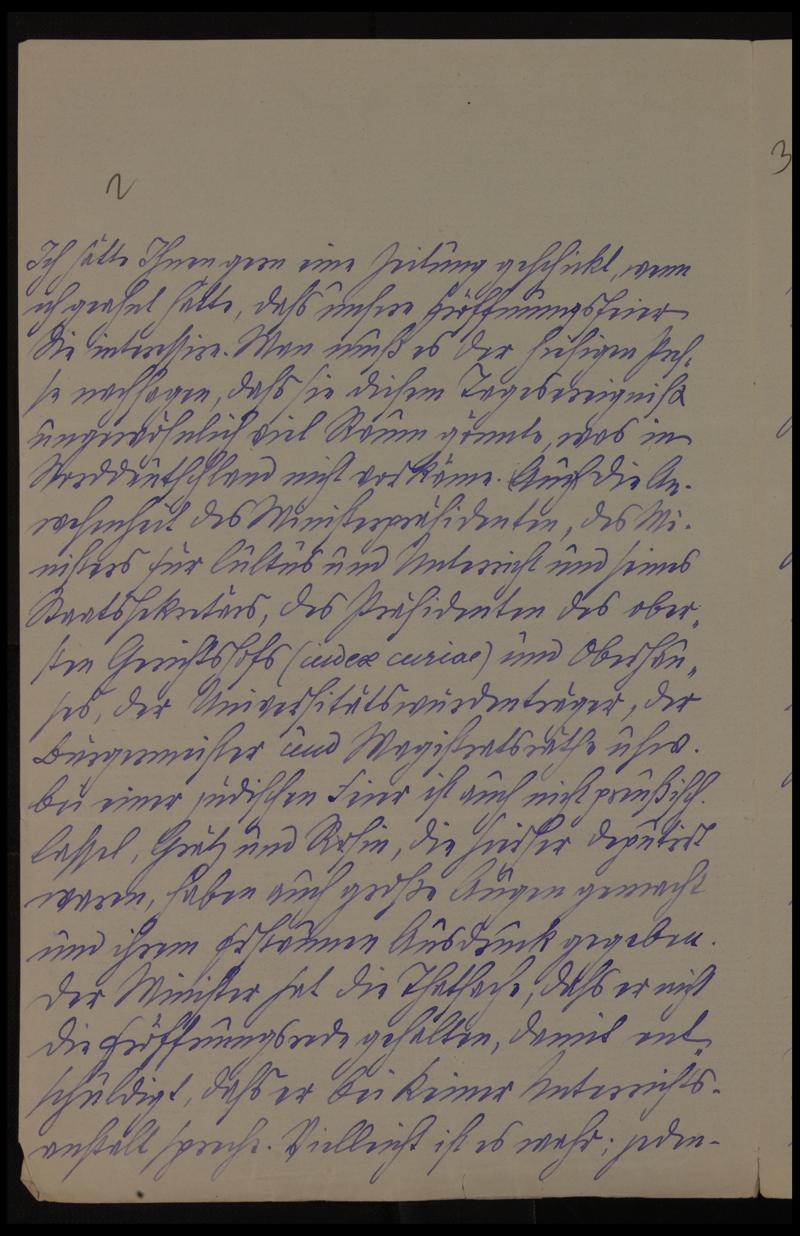 2
3
Ich hätte Ihnen gern eine Zeitung geschickt, wenn
ich geahnt hätte, dass unsere Eröffnungsfeier
Sie interessire. Man muß es der hiesigen Pres-
se nachsagen, dass sie diesem Tagesereigniß
ungewöhnlich viel Raum gönnte, was in
Norddeutschland nicht vorkäme. Auch die An-
wesenheit des Ministerpräsidenten, des Mi-
nisters für Cultus und Unterricht und seines
Staatssekretärs, des Präsidenten des ober-
sten Gerichtshofs (iudex curiae) und Oberhau-
ses, der Universitätswürdenträger, der
Bürgermeister und Magistratsräthe usw.
bei einer jüdischen Feier ist auch nicht preußisch.
Cassel, Grätz und Rosin, die hierher deputirt
waren, haben auch große Augen gemacht
und ihrem Erstaunen Ausdruck gegeben.
Der Minister hat die Thatsache, dass er nicht
die Eröffnungsrede gehalten, damit ent-
schuldigt, dass er bei keiner Unterrichts-
anstalt spreche. Vielleicht ist es wahr; jeden-